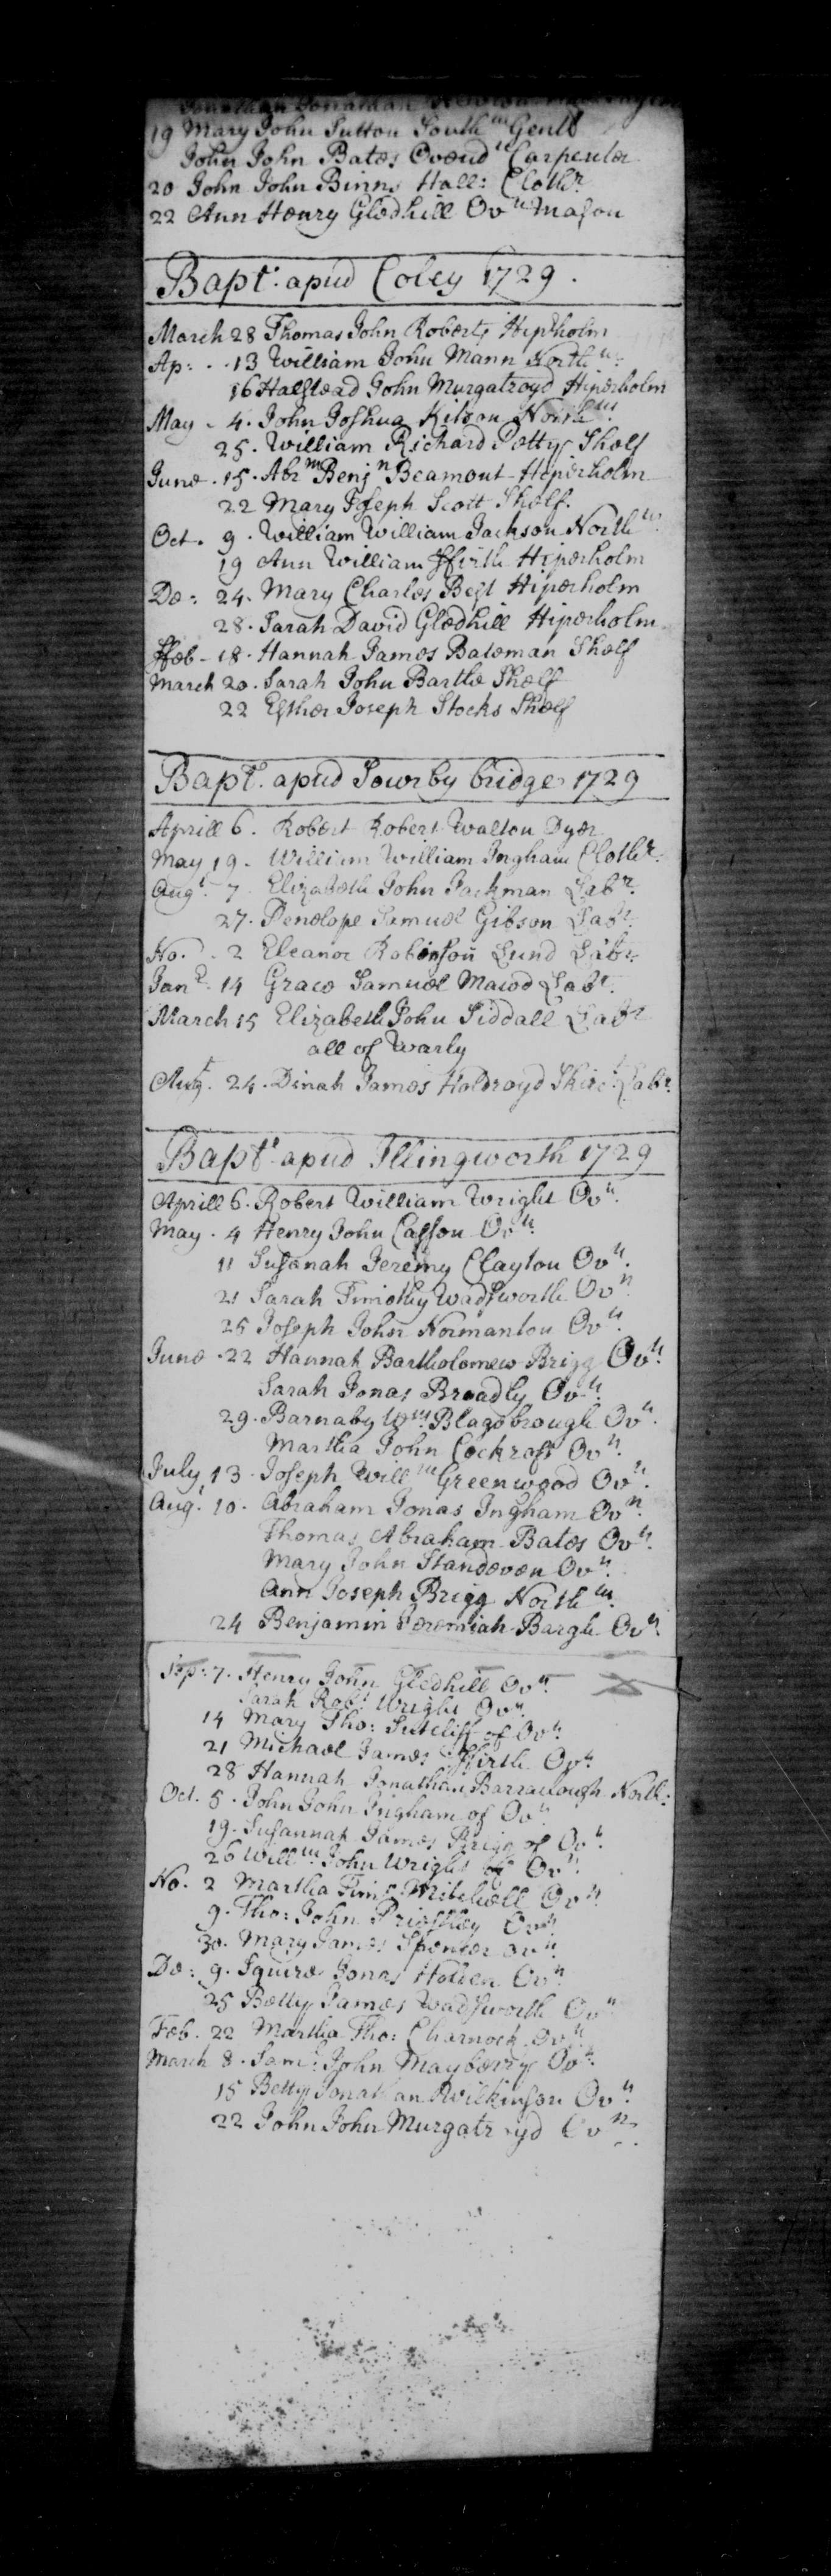 Jonathan Jonathan
19 Mary John Sutton South^m Gentl
John John Bates Ovend^n Carpenter
20 John John Binns Hall: Cloth^r
22 Ann Henry Gledhill Ov^n Mason
Bapt^s. apud Coley 1729.
March 28 Thomas John Roberts Hip^rholm
Ap: . . 13 William John Mann North^m:
16 Halstead John Murgatroyd Hiperholm
May - 4. John Joshua Kitson North^m
25. William Richard Potty Shelf
June . 15. Abr^m Benj^n Beamont Hiperholm
22 Mary Joseph Scott Shelf.
Oct. 9. William William Jackson North^m
19 Ann William ffirth Hiperholm
De: 24. Mary Charles Best Hiperholm
28. Sarah David Gledhill Hiperholm
ffeb - 18. Hannah James Bateman Shelf
March 20. Sarah John Bartle Shelf
22 Esther Joseph Stocks Shelf
Bapt^s. apud Sowrby bridge 1729
Aprill 6. Robert Robert Walton Dyer
May 19. William William Ingham Cloth^r.
Aug^t. 7 Elizabeth John Jackman Lab^r.
27. Penelope Samuel Gibson Lab^r.
No. . 2 Eleanor Robinson Lund Lab^r.
Jan^r. 14 Grace Samuel Mawd Lab^r.
March 15 Elizabeth John Siddall Lab^r
all of Warly
Aug^t. 24. Dinah James Holdroyd Skirc^t. Lab^r.
Bapt^s apud Illingworth 1729
Aprill 6. Robert William Wright Ov^n.
May . 4 Henry John Casson Ov^n.
11 Susanah Jeremy Clayton Ov^n.
21 Sarah Timothy Wadsworth Ov^n
25 Joseph John Normanton Ov^n.
June . 22 Hannah Bartholomew Brigg Ov^n.
Sarah Jonas Broadly Ov^n.
29. Barnaby W^m Blagbrough Ov^n.
Martha John Cockroft Ov^n.
July 13. Joseph Will^m Greenwood Ov^n.
Aug^t 10. Abraham Jonas Ingham Ov^n.
Thomas Abraham Bates Ov^n.
Mary John Standeven Ov^n.
Ann Joseph Brigg North^m.
24 Benjamin Jeremiah Bargh Ov^n
Sep: 7. Henry John Gledhill Ov^n.
Sarah Rob^t Wright Ov^n.
14 Mary Tho: Sutcliff of Ov^n.
21 Michael James ffirth Ov^n
28 Hannah Jonathan Barraclough North:
Oct. 5. John John Ingham of Ov^n.
19. Susannah James Brigg of Ov^n.
26 Will^m John Wright of Ov^n.
No. 2 Martha Tim^s Mitchell Ov^n
9. Tho: John Priestley Ov^n
30. Mary James Spencer ov^n.
De: 9. Squire Jonas Holden Ov^n.
25 Betty James Wadsworth Ov^n
Feb. 22 Martha Tho: Charnock Ov^n
March 8. Sam^l: John Mayberry Ov^n.
15 Betty Jonathan Wilkinson Ov^n.
22 John John Murgatroyd Ov^n.